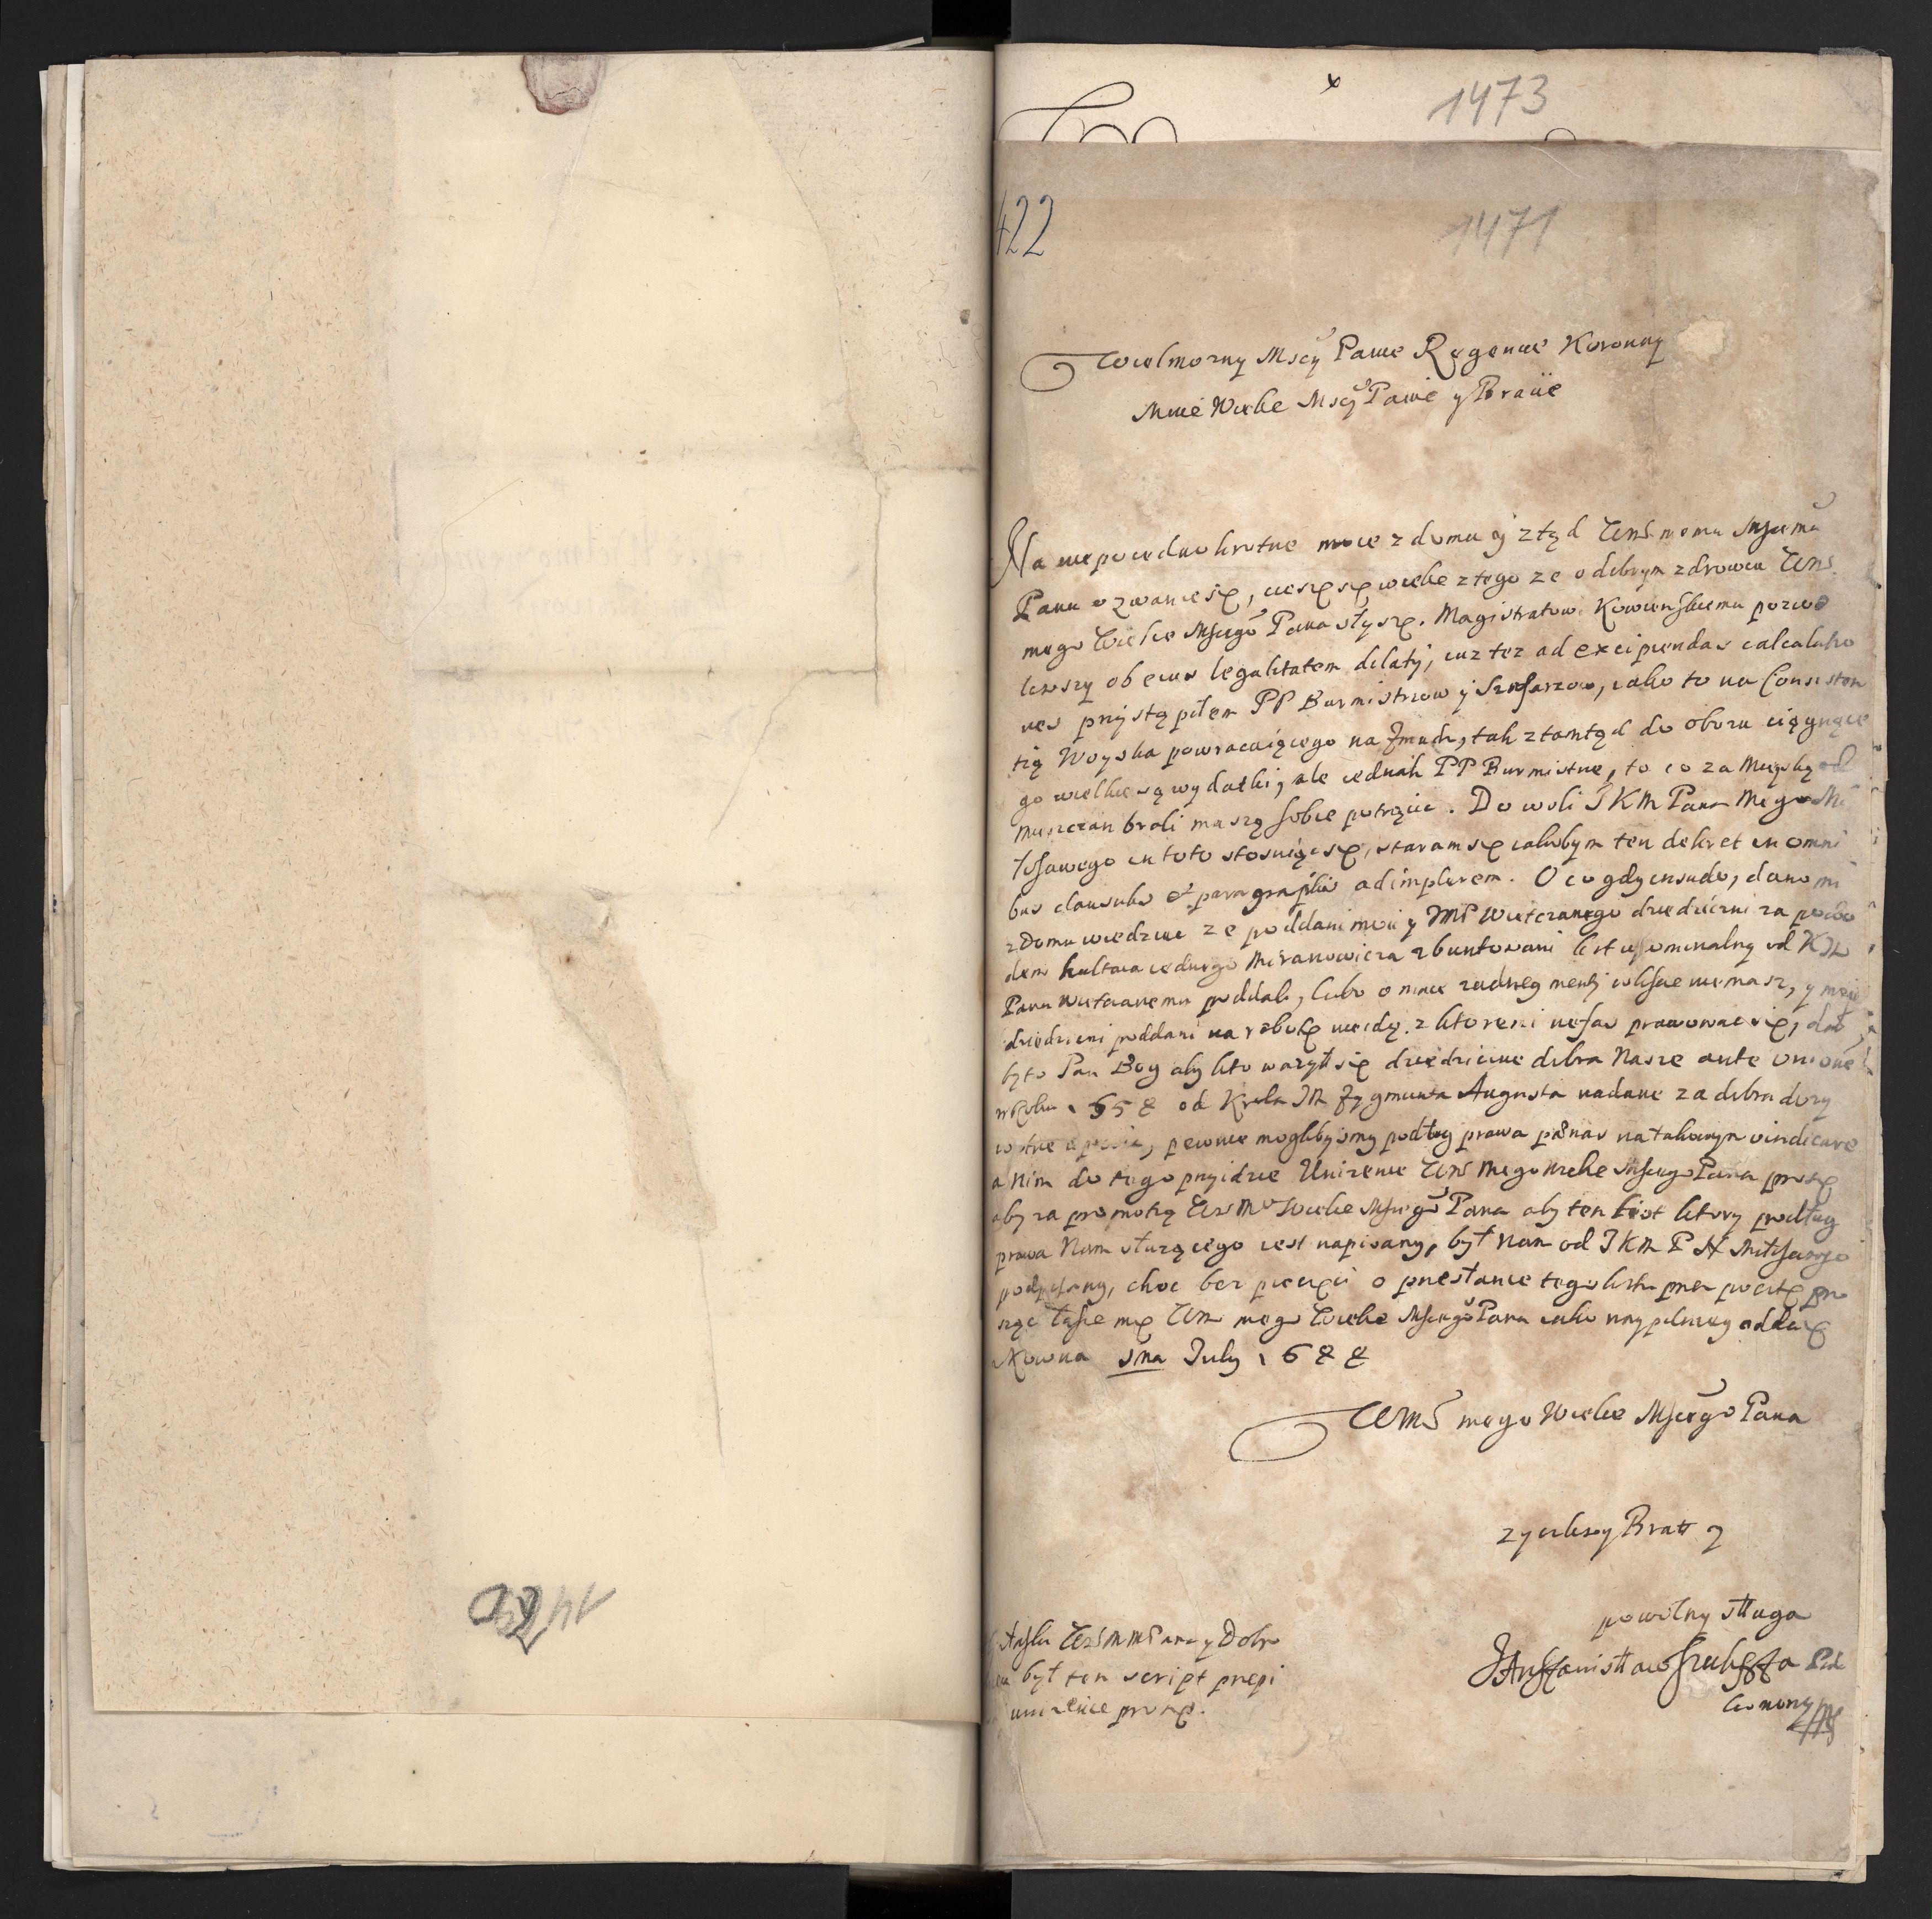 1473
422
1471
Wielmozny Mscy Panie Regencie Koronny
Mnie Wielce Mscy Panie y Bracie
Na niepoiednokrotne moie z domu y ztąd WMS memu Msciemu
Panu ozwanie się, ciesze się wielce z tego ze o dobrym zdrowiu WMS
mego Wielce Msciego Pana słyszę. Magistratowi Kowienskiemu pozwo
liwszy obecius legalitatem dilatij, iuz tez ad excipiendas calculatio
nes przystąpiłem PP Burmistrzow y Szafarzow, iako to na Consisten
tią Woyska powracaiącego na Zmudz, tak ztamtąd do obozu ciągnące
go wielkie są wydatki, ale iednak PP Burmistrze, to co za
mieszczan brali maszą sobie potrącic. Do woli JKM Pana Mego Mi
łosciwego in toto stosuiąc się, staram się iakobym ten dekret in omni
bus clausulis et paragraphis adimplerem. O co gdy insudo, dano mi
z Domu wiedziec ze poddani moi y JMP Wietczanego dziedziczni za powo
dem hultaia iednego Miranowicza zbuntowani list od
Panu Wietczanemu poddali, lubo o mnie zadney w liscie niemasz, y moi
dziedziczni poddani na robotę nieidą, z ktoremi nefas prawowac się, dał
by to Pan Bog aby kto wazył się dziedziczne dobra Nasze ante unione
w Roku 1558 od Krola JM Zygmunta Augusta nadane za dobra dozy
wotnie, pewnie moglibysmy podług prawa pænas na takowym vindicare
a nim do tego przyidzie Unizenie WMS Mego Wielce Msciego Pana proszę
aby za promotią WMS Mo Wielce Msciego Pana aby ten list ktory podług
prawa Nam słuzącego iest napisany, był nam od JKM P N Miłosciwego
podpisany, choc bez pieczęci o przesłanie tego listu przez pocztę pro
szę łasce mię WM mego Wielce Msciego Pana iako naypilniey oddaię
Kowna July 1688
WMS mego Wielce Msciego Pana
zyczliwy Bratt y
powolny sługa
Jan Stanisław
Koronny
WMS M M Pana y Dobro
był ten script przepi
unizenie proszę.